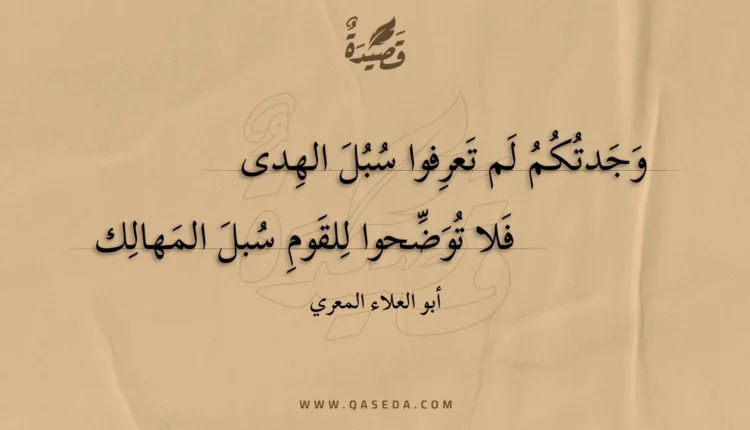 قَصِيدَةٌ
وَجَدتُكُمُ لَم تَعرِفوا سُبُلَ الهِدى
فَلا تُوَضِّحوا لِلقَومِ سُبلَ المَهالِك
أبو العلاء المعري
WWW.QASEDA.COM